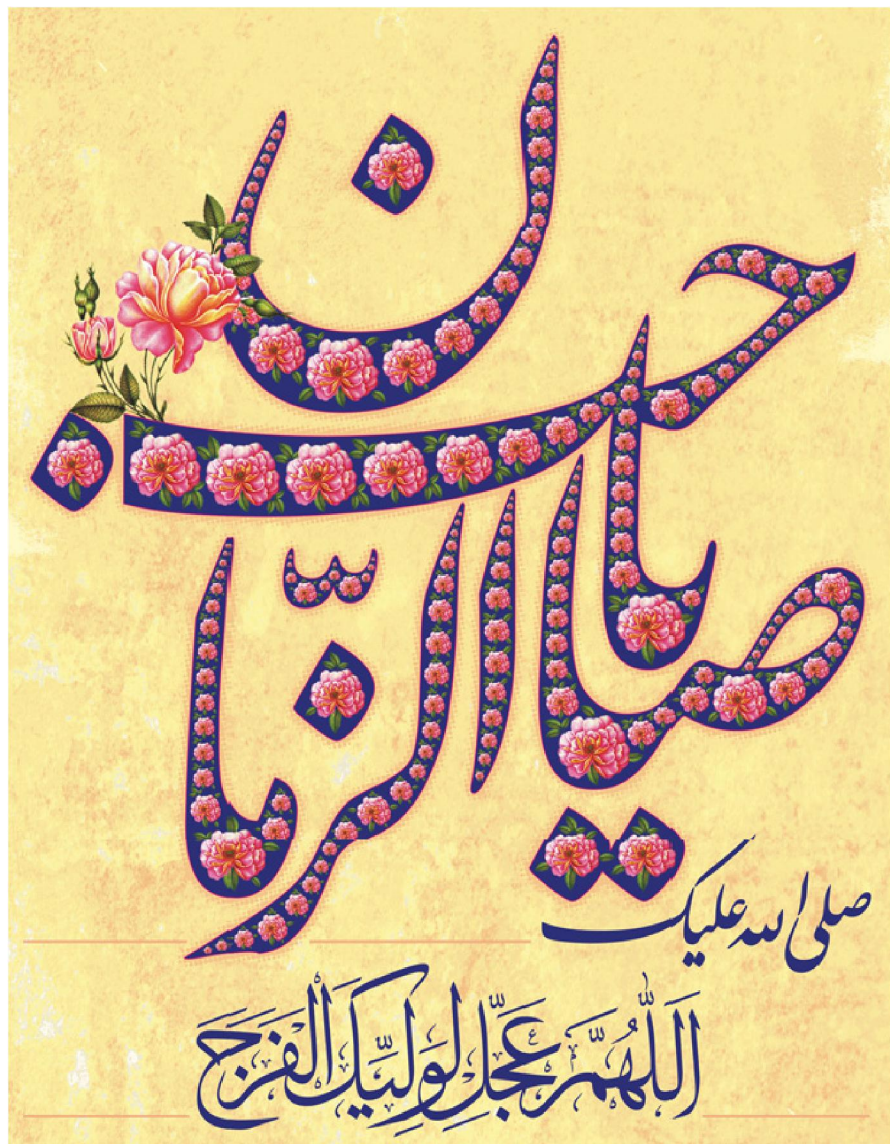 یا صاحب الزّمان
صلی الله علیک
اَللّٰهُمَّ عَجِّل لِوَلِیِّکَ الْفَرَجَ